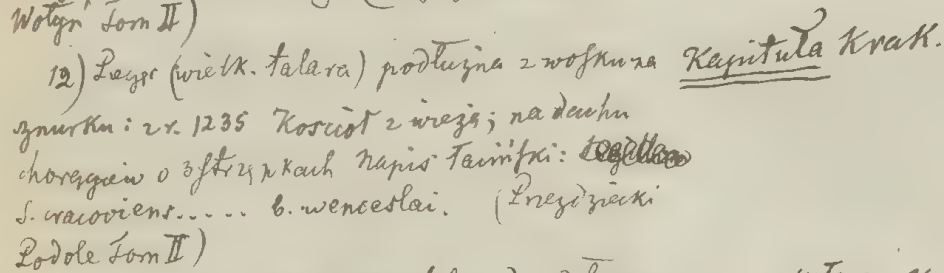 Wołyń Tom II)
12) Pieczęć (wielk. talara) podłużna z wosku na Kapituła Krak.
sznurku: z r. 1235 Kościół z wieżą; na dachu
chorągiew o 3 strzępkach Napis łaciński:
S. cracoviens..... b. wenceslai. (Przezdziecki
Podole Tom II)